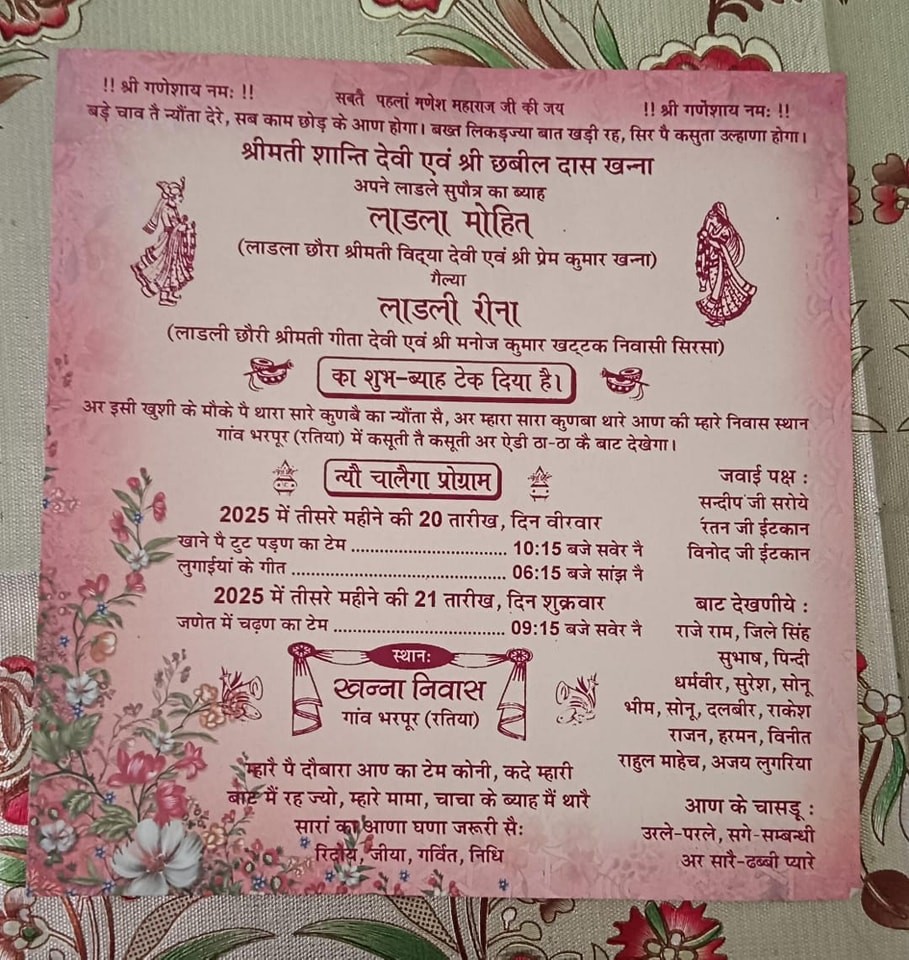 !! श्री गणेशाय नमः !!
सबतै पहलां गणेश महाराज जी की जय
!! श्री गणेशाय नमः !!
बड़े चाव तै न्यौंता देरे, सब काम छोड़ के आण होगा। बख्त लिकड़ज्या बात खड़ी रह, सिर पै कसुता उल्हाणा होगा।
श्रीमती शान्ति देवी एवं श्री छबील दास खन्ना
अपने लाडले सुपौत्र का ब्याह
लाडला मोहित
(लाडला छौरा श्रीमती विद्या देवी एवं श्री प्रेम कुमार खन्ना)
गैल्या
लाडली रीना
(लाडली छौरी श्रीमती गीता देवी एवं श्री मनोज कुमार खट्टक निवासी सिरसा)
का शुभ-ब्याह टेक दिया है।
अर इसी खुशी के मौके पै थारा सारे कुणबै का न्यौंता सै, अर म्हारा सारा कुणबा थारे आण की म्हारे निवास स्थान
गांव भरपूर (रतिया) में कसूती तै कसूती अर ऐडी ठा-ठा कै बाट देखेगा।
न्यौ चालैगा प्रोग्राम
2025 में तीसरे महीने की 20 तारीख, दिन वीरवार
खाने पै टुट पड़ण का टेम ................................ 10:15 बजे सवेर नै
लुगाईयां के गीत ............................................ 06:15 बजे सांझ नै
2025 में तीसरे महीने की 21 तारीख, दिन शुक्रवार
जणेत में चढ़ण का टेम ................................... 09:15 बजे सवेर नै
स्थानः
खन्ना निवास
गांव भरपूर (रतिया)
म्हारै पै दौबारा आण का टेम कोनी, कदे म्हारी
बाट मैं रह ज्यो, म्हारे मामा, चाचा के ब्याह मैं थारै
सारां का आणा घणा जरूरी सैः
रिदौय, जीया, गर्वित, निधि
जवाई पक्ष :
सन्दीप जी सरोये
रतन जी ईटकान
विनोद जी ईटकान
बाट देखणीये :
राजे राम, जिले सिंह
सुभाष, पिन्दी
धर्मवीर, सुरेश, सोनू
भीम, सोनू, दलबीर, राकेश
राजन, हरमन, विनीत
राहुल माहेच, अजय लुगरिया
आण के चासडू :
उरले-परले, सगे-सम्बन्धी
अर सारै-ढब्बी प्यारे